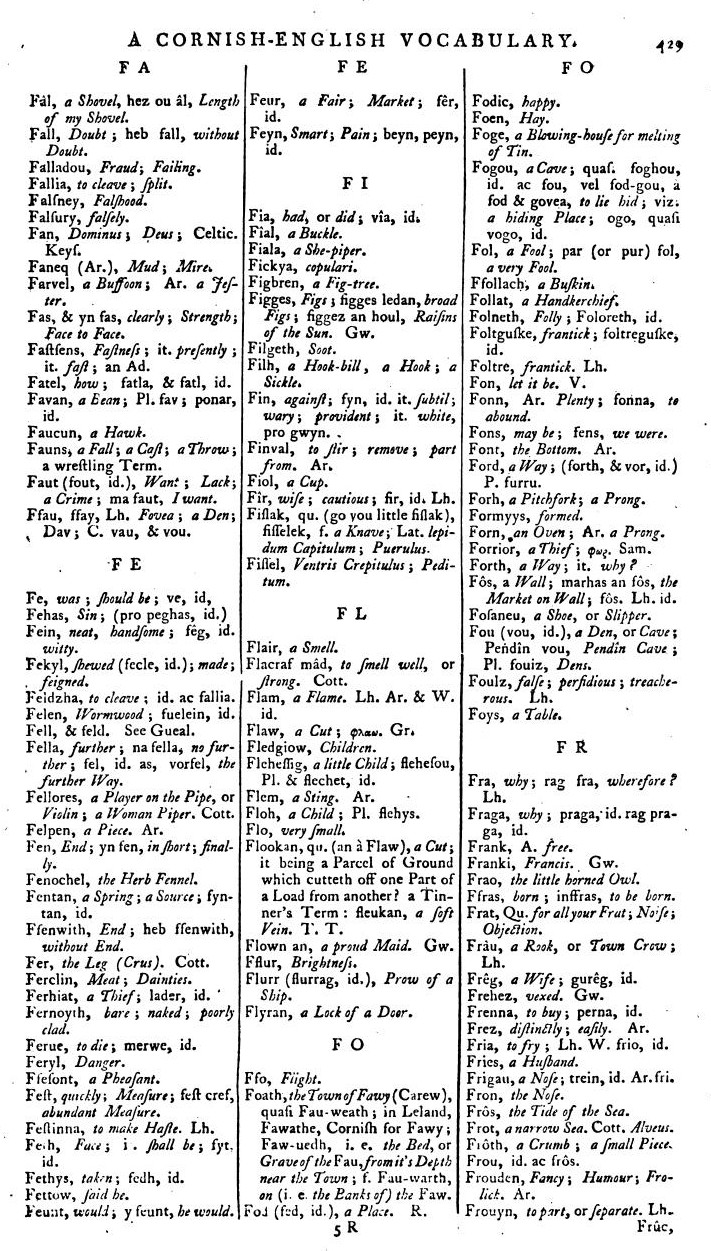 A CORNISH-ENGLISH VOCABULARY. 429
F A
Fàl, a Shovel, hez ou âl, Length
of my Shovel.
Fall, Doubt ; heb fall, without
Doubt.
Falladou, Fraud; Failing.
Fallia, to cleave ; ſplit.
Falſney, Falſhood.
Falſury, falſely.
Fan, Dominus ; Deus ; Celtic.
Keyſ.
Faneq (Ar.), Mud ; Mire.
Farvel, a Buffoon ; Ar. a Jeſ-
ter.
Fas, & yn fas, clearly ; Strength ;
Face to Face.
Faſtſens, Faſtneſs ; it. preſently ;
it. faſt ; an Ad.
Fatel, how ; fatla, & fatl, id.
Favan, a Bean ; Pl. fav ; ponar,
id.
Faucun, a Hawk.
Fauns, a Fall ; a Caſt ; a Throw ;
a wreſtling Term.
Faut (fout, id.), Want ; Lack ;
a Crime ; ma faut, I want.
Ffau, ffay, Lh. Fovea ; a Den ;
Dav ; C. vau, & vou.
F E
Fe, was ; ſhould be ; ve, id,
Fehas, Sin ; (pro peghas, id.)
Fein, neat, handſome ; fêg, id.
witty.
Fekyl, ſhewed (fecle, id.) ; made ;
feigned.
Feidzha, to cleave ; id. ac fallia.
Felen, Wormwood ; fuelein, id.
Fell, & feld. See Gueal.
Fella, further ; na fella, no fur-
ther ; fel, id. as, vorfel, the
further Way.
Fellores, a Player on the Pipe, or
Violin ; a Woman Piper. Cott.
Felpen, a Piece. Ar.
Fen, End ; yn fen, in ſhort ; final-
ly.
Fenochel, the Herb Fennel.
Fentan, a Spring ; a Source ; fyn-
tan, id.
Ffenwith, End ; heb ffenwith,
without End.
Fer, the Leg (Crus). Cott.
Ferclin, Meat ; Dainties.
Ferhiat, a Thief ; lader, id.
Fernoyth, bare ; naked ; poorly
clad.
Ferue, to die ; merwe, id.
Feryl, Danger.
Ffeſont, a Pheaſant.
Feſt, quickly ; Meaſure ; feſt cref,
abundant Meaſure.
Feſtinna, to make Haſte. Lh.
Feth, Face ; i . ſhall be ; fyt,
id.
Fethys, taken ; fedh, id.
Fettow, ſaid he.
Feunt, would ; y feunt, he would.
F E
Feur, a Fair ; Market ; fêr,
id.
Feyn, Smart ; Pain ; beyn, peyn,
id.
F I
Fia, had, or did ; vîa, id.
Fîal, a Buckle.
Fiala, a She-piper.
Fickya, copulari.
Figbren, a Fig-tree.
Figges, Figs ; figges ledan, broad
Figs ; figgez an houl, Raiſins
of the Sun. Gw.
Filgeth, Soot.
Filh, a Hook-bill, a Hook ; a
Sickle.
Fin, againſt ; fyn, id. it. ſubtil ;
wary ; provident ; it. white,
pro gwyn.
Finval, to ſtir ; remove ; part
from. Ar.
Fiol, a Cup.
Fîr, wiſe ; cautious ; fir, id. Lh.
Fiſlak, qu. (go you little fiſlak),
fiſſelek, f. a Knave ; Lat. lepi-
dum Capitulum ; Puerulus.
Fiſtel, Ventris Crepitulus ; Pedi-
tum.
F L
Flair, a Smell.
Flacraf mâd, to ſmell well, or
ſtrong. Cott.
Flam, a Flame. Lh. Ar. & W.
id.
Flaw, a Cut ; φλαω. Gr.
Fledgiow, Children.
Fleheſſig, a little Child ; fleheſou,
Pl. & flechet, id.
Flem, a Sting. Ar.
Floh, a Child ; Pl. flehys.
Flo, very ſmall.
Flookan, qu. (an à Flaw), a Cut ;
it being a Parcel of Ground
which cutteth off one Part of
a Load from another ? a Tin-
ner's Term : fleukan, a ſoft
Vein. T. T.
Flown an, a proud Maid. Gw.
Fflur, Brightneſs.
Flurr (flurrag, id.), Prow of a
Ship.
Flyran, a Lock of a Door.
F O
Ffo, Flight.
Foath, the Town of Fawy (Carew),
quaſi Fau-weath ; in Leland,
Fawathe, Corniſh for Fawy ;
Faw-uedh, i. e. the Bed, or
Grave of the Fau, from it's Depth
near the Town ; f. Fau-warth,
on (i. e. the Banks of) the Faw.
Fod (fed, id.), a Place. R.
F O
Fodic, happy.
Foen, Hay.
Foge, a Blowing-houſe for melting
of Tin.
Fogou, a Cave ; quaſ. foghou,
id. ac fou, vel fod-gou, à
fod & govea, to lie hid ; viz.
a hiding Place ; ogo, quaſi
vogo, id.
Fol, a Fool ; par (or pur) fol,
a very Fool.
Ffollach, a Buſkin.
Follat, a Handkerchief.
Folneth, Folly ; Foloreth, id.
Foltguſke, frantick ; foltreguſke,
id.
Foltre, frantick. Lh.
Fon, let it be. V.
Fonn, Ar. Plenty ; fonna, to
abound.
Fons, may be ; fens, we were.
Font, the Bottom. Ar.
Ford, a Way ; (forth, & vor, id.)
P. furru.
Forh, a Pitchfork ; a Prong.
Formyys, formed.
Forn, an Oven ; Ar. a Prong.
Forrior, a Thief ; φωρ. Sam.
Forth, a Way ; it. why ?
Fôs, a Wall ; marhas an fôs, the
Market on Wall ; fôs. Lh. id.
Foſaneu, a Shoe, or Slipper.
Fou (vou, id.), a Den, or Cave ;
Pendîn vou, Pendîn Cave ;
Pl. fouiz, Dens.
Foulz, falſe ; perfidious ; treache-
rous. Lh.
Foys, a Table.
F R
Fra, why ; rag fra, wherefore ?
Lh.
Fraga, why ; praga, id. rag pra-
ga, id.
Frank, A. free.
Franki, Francis. Gw.
Frao, the little horned Owl.
Ffras, born ; inffras, to be born.
Frat, Qu. for all your Frat ; Noiſe ;
Objection.
Fràu, a Rook, or Town Crow ;
Lh.
Frêg, a Wife ; gurêg, id.
Frehez, vexed. Gw.
Frenna, to buy ; perna, id.
Frez, diſtinctly ; eaſily. Ar.
Fria, to fry ; Lh. W. frio, id.
Fries, a Huſband.
Frigau, a Noſe ; trein, id. Ar. fri.
Fron, the Noſe.
Frôs, the Tide of the Sea.
Frot, a narrow Sea. Cott. Alveus.
Frôth, a Crumb ; a ſmall Piece.
Frou, id. ac frôs.
Frouden, Fancy ; Humour ; Fro-
lick. Ar.
Frouyn, to part, or ſeparate. Lh.
5 R
Frûc,